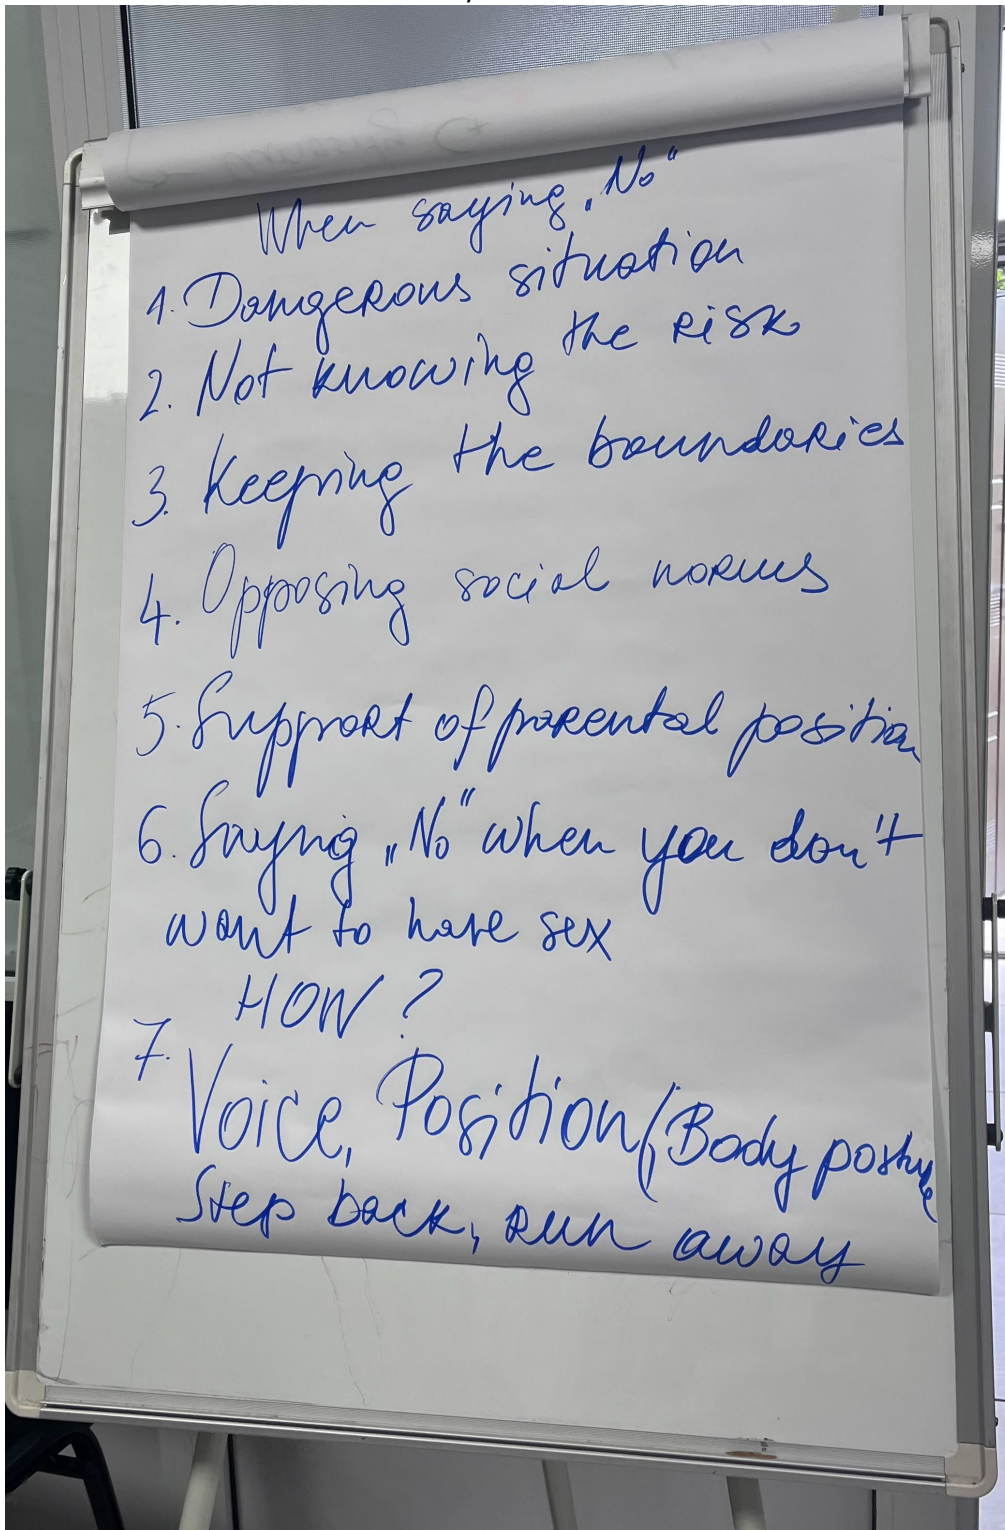 When saying „No“
1. Dangerous situation
2. Not knowing the risk
3. Keeping the boundaries
4. Opposing social norms
5. Support of parental position
6. Sayng „No“ when you don't
want to have sex
HOW?
7.
Voice, Position/Body posture
Step back, run away